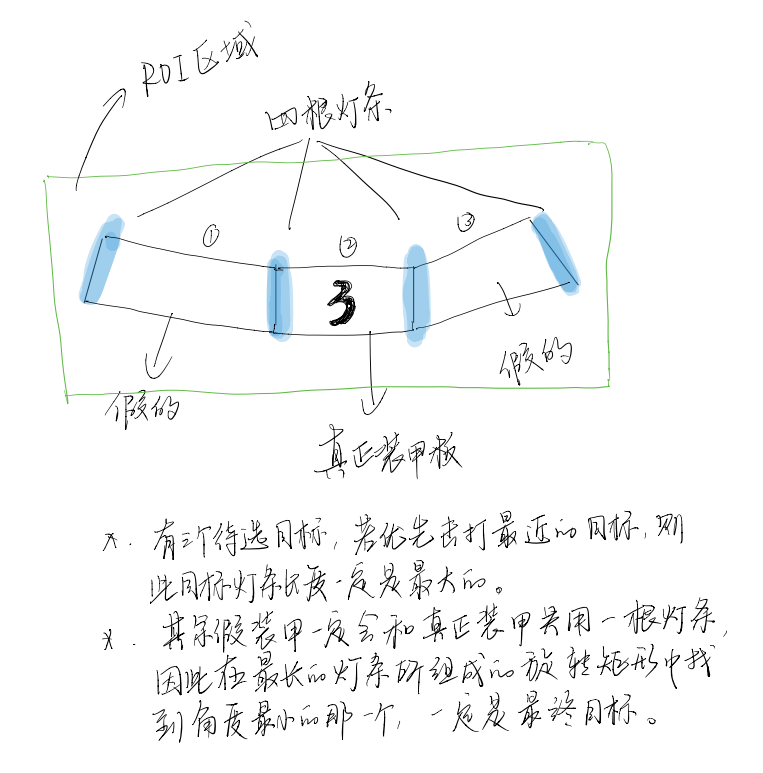 ROI区域
四根灯条
① ② ③
3
假的
假的
真正装甲板
*. 有三个待选目标,若优先击打最近的目标,则
此目标灯条长度一定是最大的。
*. 其余假装甲一定会和真正装甲共用一根灯条,
因此在最长的灯条所组成的旋转矩形中找
到角度最小的那一个,一定是最终目标。